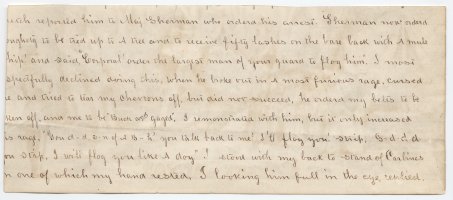 reported him to Maj Sherman who orderd his arrest. Sherman now orderd
to be tied up to A tree and to receive fifty lashes on the bare back with A mule
whip" and said "Corporal order the largest man of your guard to flog him. I most
respectfully declined doing this, when he broke out in A most furious rage, cursed
me and tried to tear my Cheverons off, but did not succeed, he orderd my belts to be
taken off, and me to be "Buck and gaged", I remonstrated with him, but it only increased
his rage, "You d-d s-n of A B-h" you talk back to me! I'll flog you" strip, G-d d-d
you strip, I will flog you like A dog"! I stood with my back to stand of Carbines
on one of which my hand rested, I looking him full in the eye, replied.